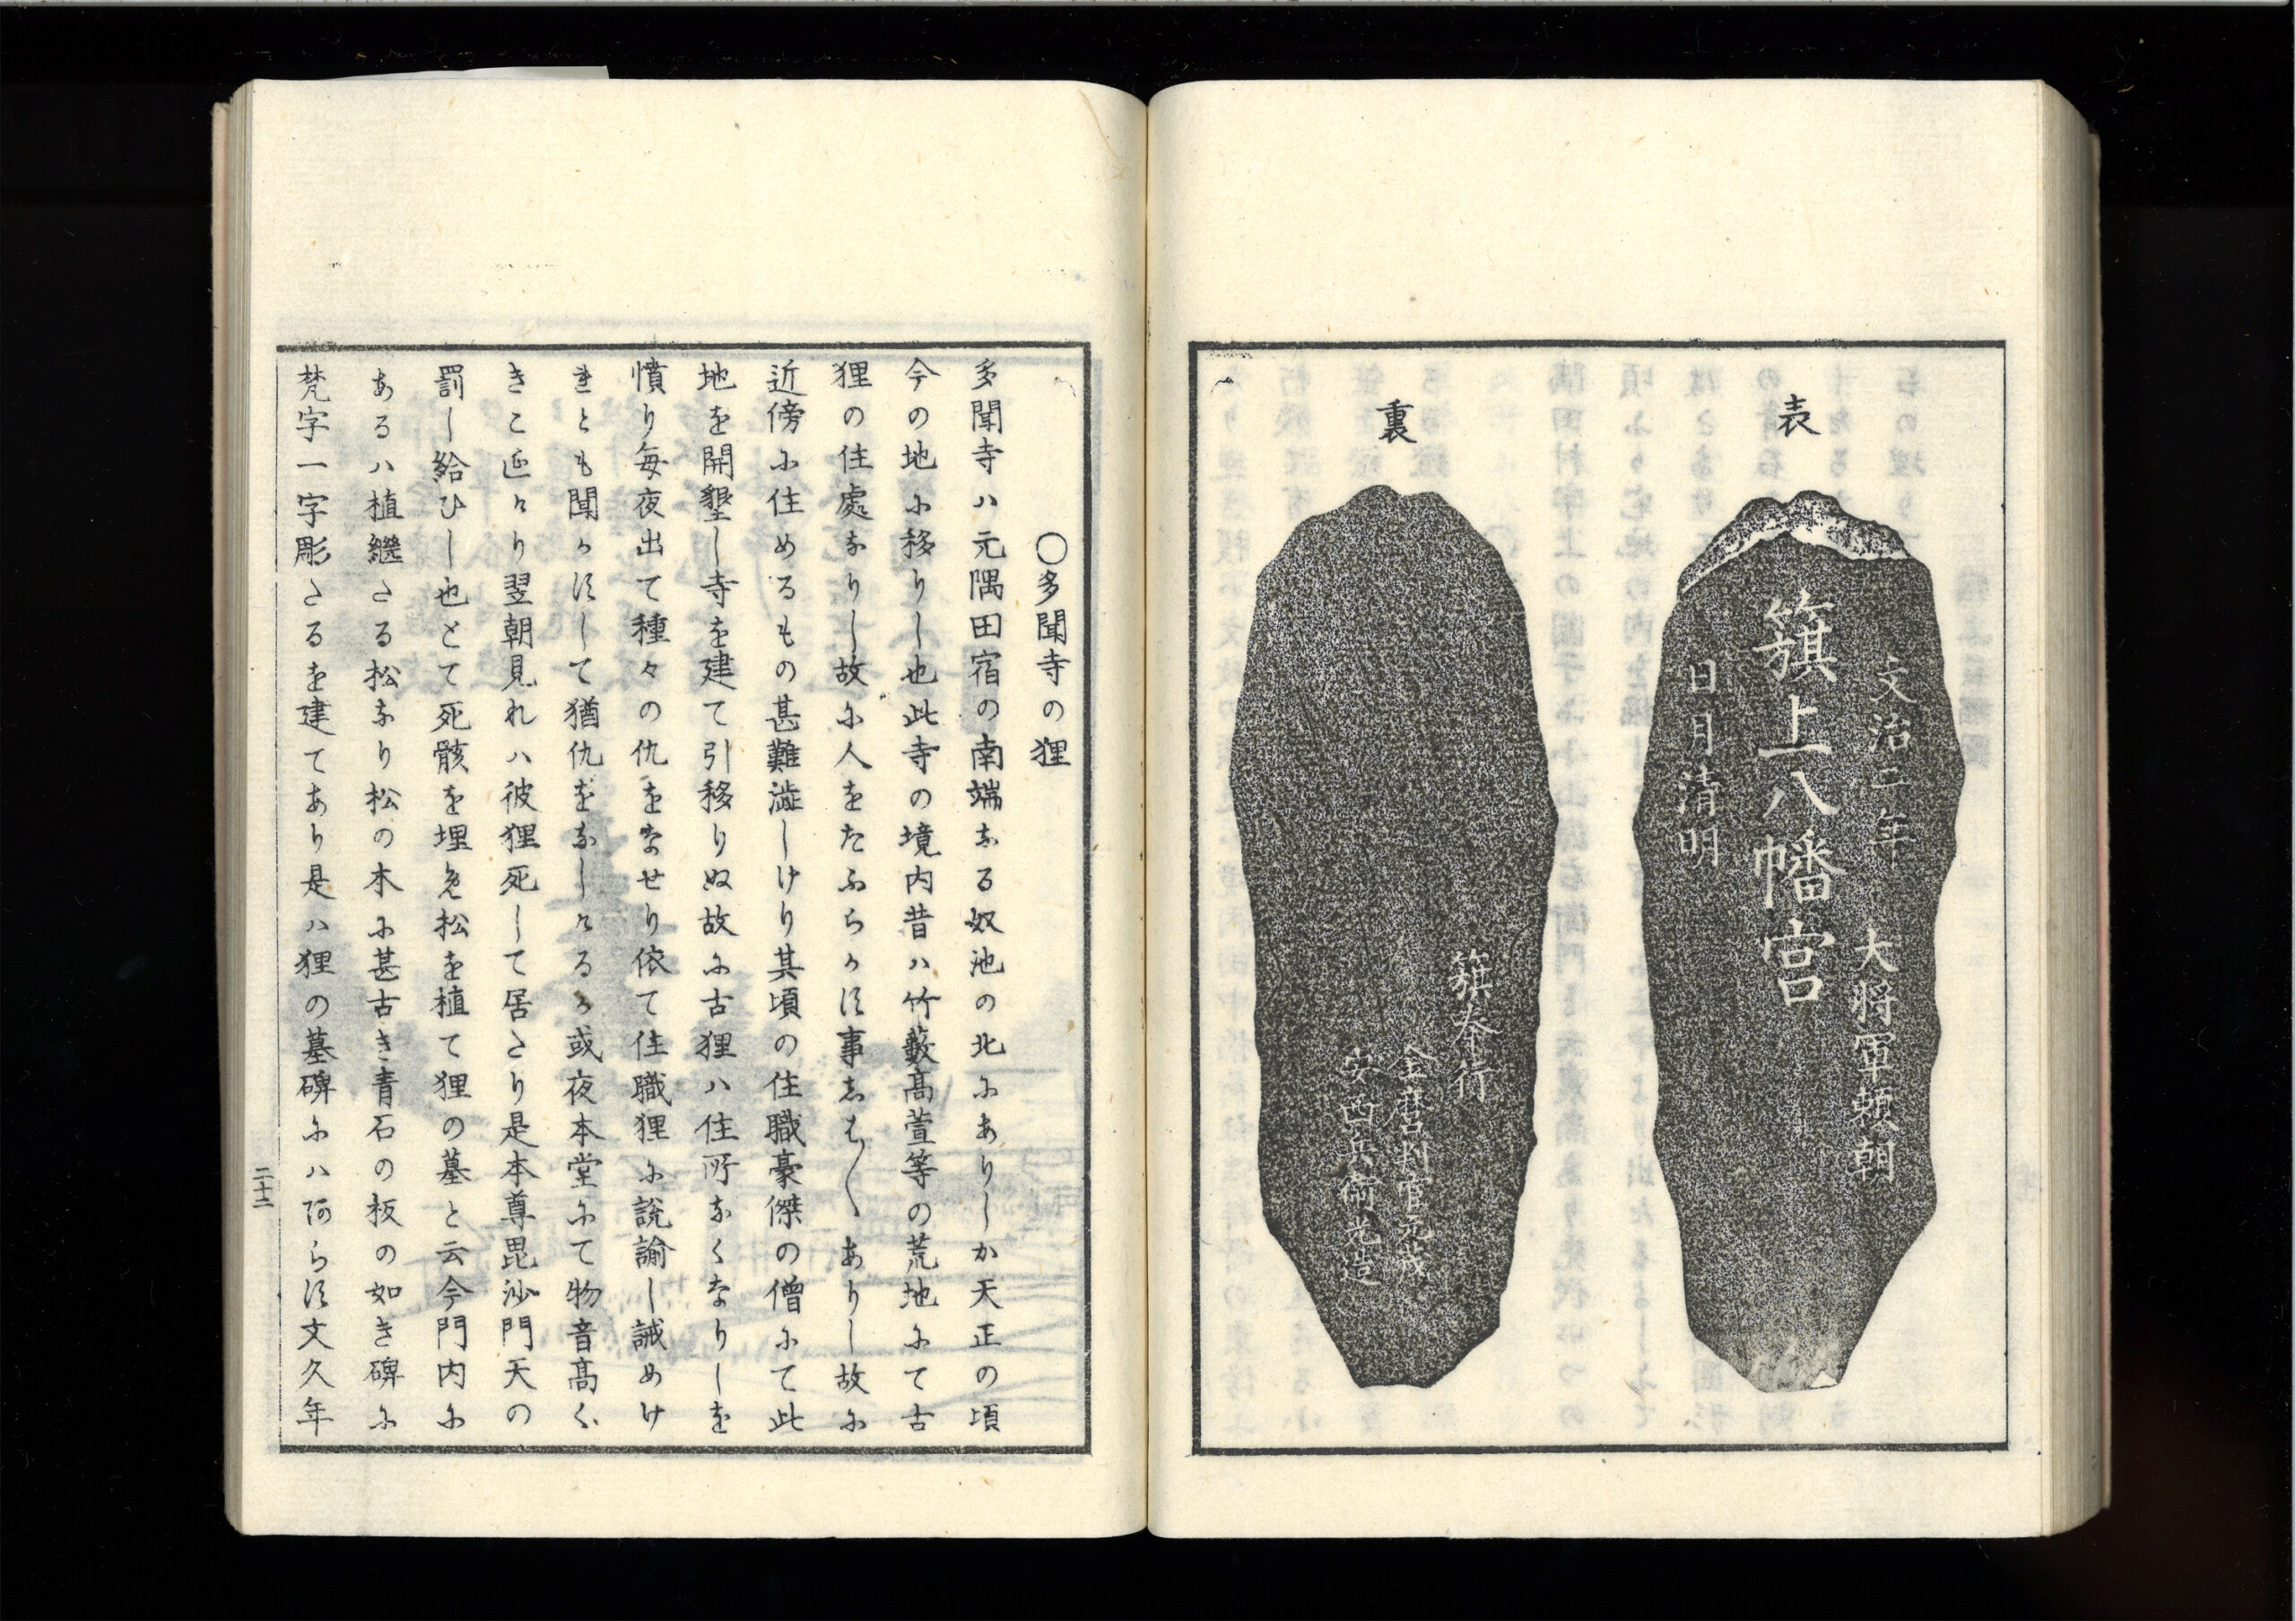 表
文治二年 大将軍頼朝
籏上八幡宮
日月清明
裏
籏奉行
安西兵衛
〇多聞寺の狸
多聞寺ハ元隅田宿の南端なる奴池の北にありしか天正の頃
今の地に移りし也此寺の境内昔ハ竹藪高萱等の荒地にて古
狸の住處なりし故に人をたふらかす事しは〱ありし故に
近傍に住めるもの甚難澁しけり其頃の住職豪傑の僧にて此
地を開墾し寺を建て引移りぬ故に古狸ハ住所なくなりしを
憤り毎夜出て種々の仇をなせり依て住職狸に説諭し誡めけ
れとも聞かすして猶仇をなしけるか或夜本堂にて物音高く
きこ江けり翌朝見れハ彼狸死して居たり是本尊毘沙門天の
罰し給ひし也とて死骸を埋め松を植て狸の墓と云今門内に
あるハ植継たる松なり松の木に甚古き青石の板の如き碑に
梵字一字彫たるを建てあり是ハ狸の墓碑にハ阿らす文久年
二十二